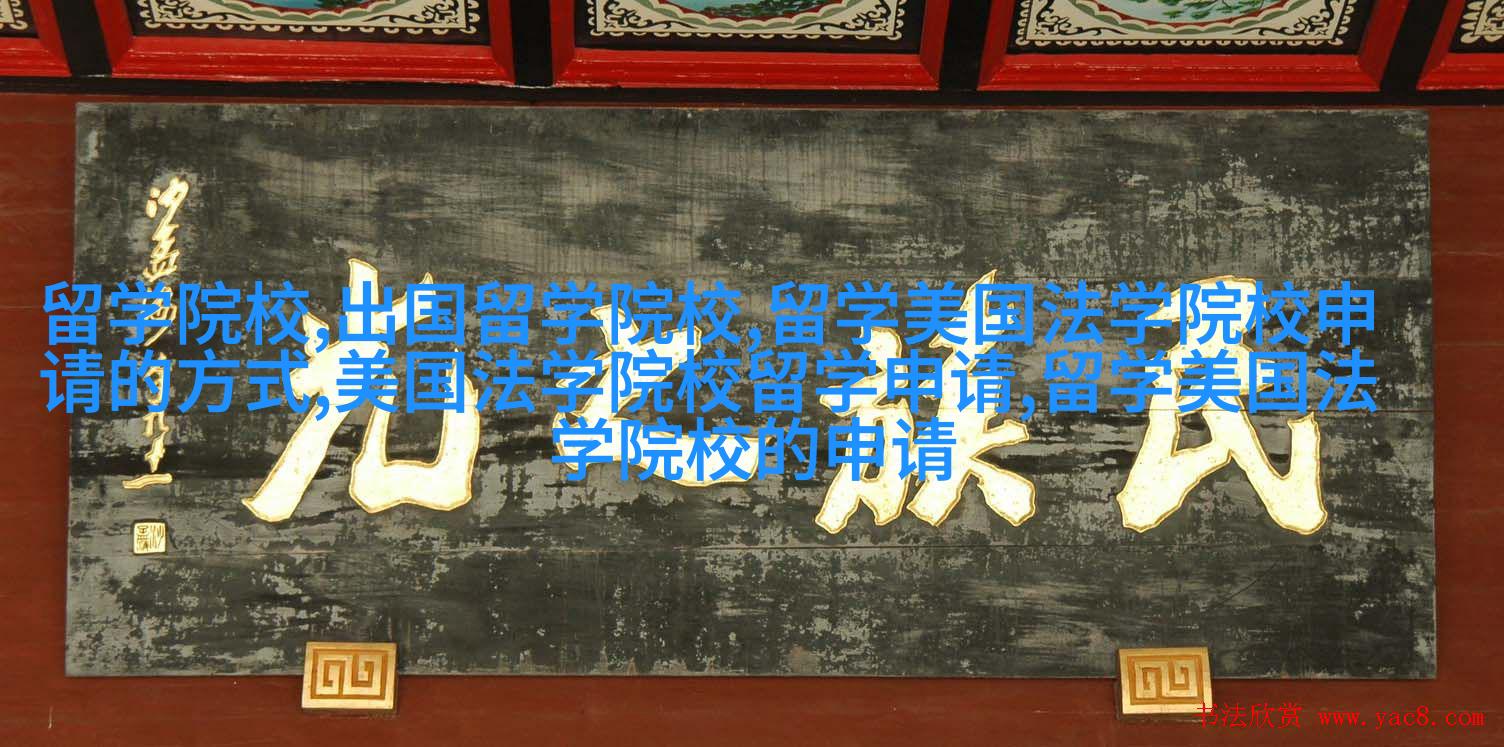 民族之光
沙孟海
九十一
留学院校,出国留学院校,留学美国法学院校申
请的方式,美国法学院校留学申请,留学美国法
学院校的申请
书法欣赏 www.yac8.com